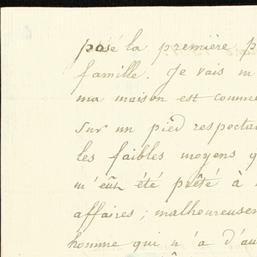 posé la première p
famille. Je vais m
ma maison est comme
sur un pied respecta
les faibles moyens q
m'eût été prêté à
affaires; malheureusem
homme qui n'a d'au